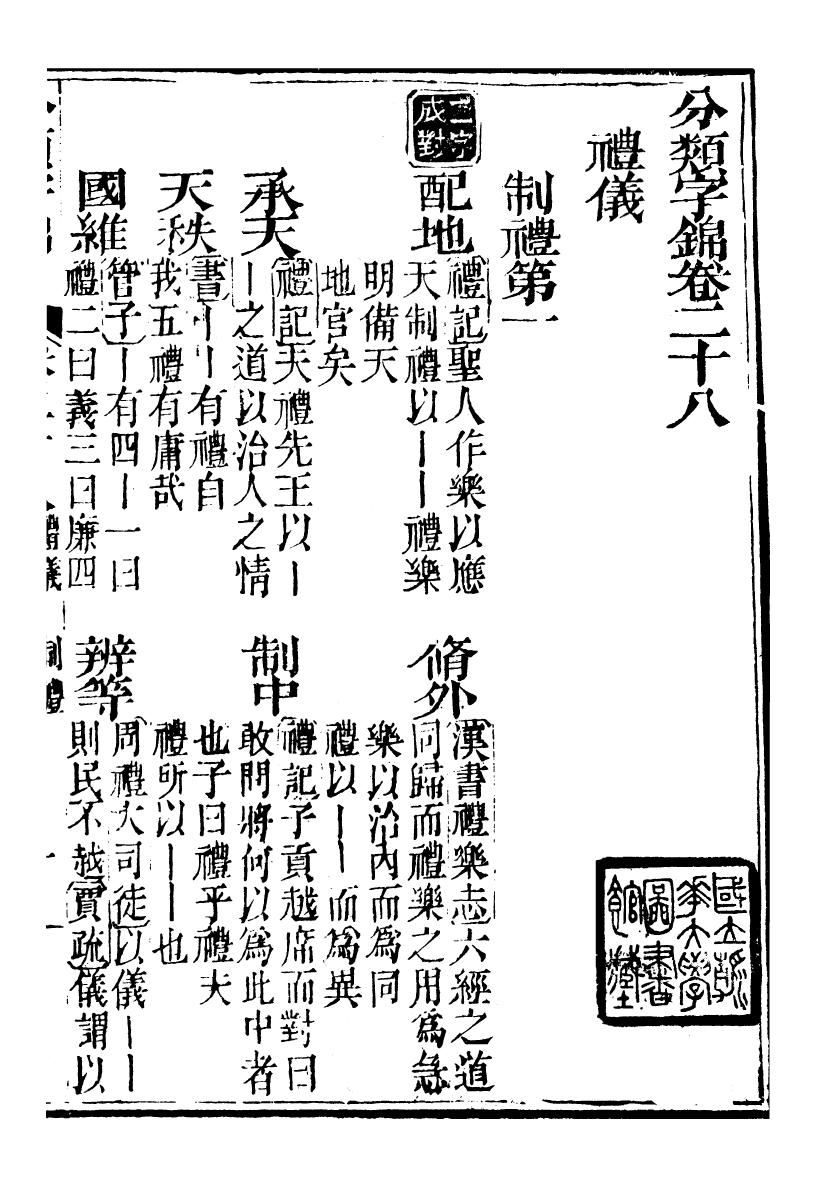 分類字錦卷二十八
國立清
華大學
圖書
館藏
禮儀
制禮第一
二字
成對
配地
禮記聖人作樂以應
天制禮以丨丨禮樂
明備天
地官矣
脩外
漢書禮樂志六經之道
同歸而禮樂之用爲急
樂以治內而爲同
禮以丨丨而爲異
承天
禮記夫禮先王以丨
丨之道以治人之情
制中
禮記子貢越席而對曰
敢問將何以爲此中者
也子曰禮乎禮夫
禮所以丨丨也
天秩
書丨丨有禮自
我五禮有庸哉
國維
管子丨有四丨一曰
禮二曰義三曰廉四
辨等
周禮大司徒以儀丨丨
則民不越賈疏儀謂以
禮儀 制禮 一